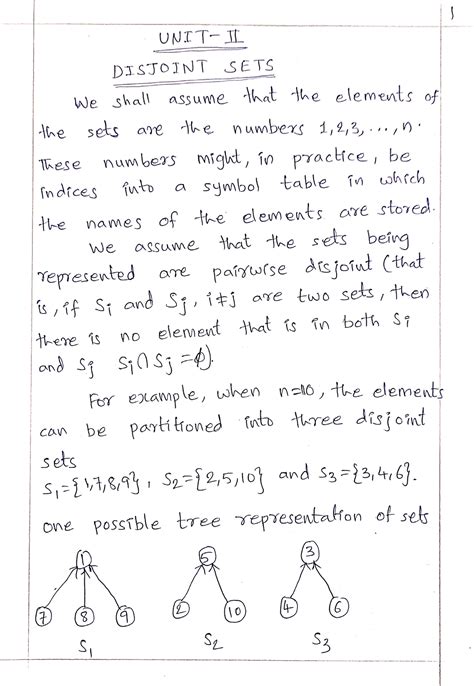 1
UNIT-II
DISJOINT SETS
We shall assume that the elements of
the sets are the numbers 1,2,3, ..., n.
These numbers might, in practice, be
indices into a symbol table in which
the names of the elements are stored.
We assume that the sets being
represented are pairwise disjoint (that
is, if Si and Sj, i≠j are two sets, then
there is no element that is in both Si
and Sj Si∩Sj =ϕ).
For example, when n=10, the elements
can be partitioned into three disjoint
sets
S1={1,7,8,9}, S2={2,5,10} and S3={3,4,6}.
one possible tree representation of sets
1 5 3
7 8 9 2 10 4 6
S1 S2 S3